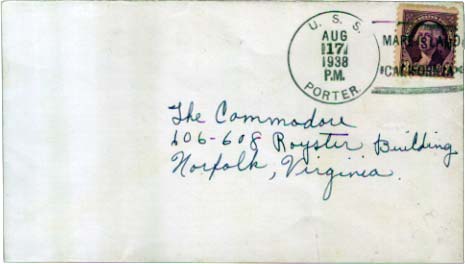 U. S. S.
AUG
17
1938
P.M.
PORTER
MARE ISLAND
CALIFORNIA
The Commodore
606-608 Royster Building
Norfolk, Virginia.